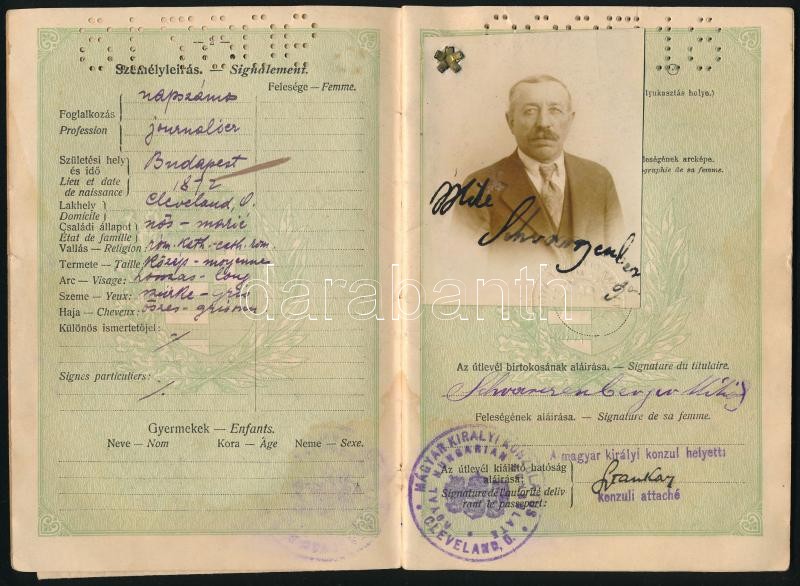 — 2 —
Személyleírás. — Signalement.
Felesége — Femme.
napszámos
Foglalkozás
Profession
journalier
Születési hely
és idő
Lieu et date
de naissance
Budapest
1872
Lakhely
Domicile
Cleveland, O.
Családi állapot
État de famille
nős - marié
Vallás — Religion
rom. kath. - cath. rom.
Termete — Taille
közép - moyenne
Arc — Visage:
hosszas - long
Szeme — Yeux:
szürke - gris
Haja — Cheveux:
őszes -
Különös ismertetőjei:
Signes particuliers:
Gyermekek — Enfants.
Neve — Nom Kora — Âge Neme — Sexe.
lyukasztás helye.)
leségének arcképe.
ographie de sa femme.
Mike
Schvarzenberger
darabanth
Az útlevél birtokosának aláírása. — Signature du titulaire.
Schvarzenberger Mihály
Feleségének aláírása. — Signature de sa femme.
A magyar királyi konzul helyett:
Az útlevél kiállító hatóság
aláírása:
Signature de l'autorité déliv
rant le passeport:
konzuli attaché
MAGYAR KIRÁLYI KONZULÁTUS
ROYAL HUNGARIAN CONSULATE
CLEVELAND, O.